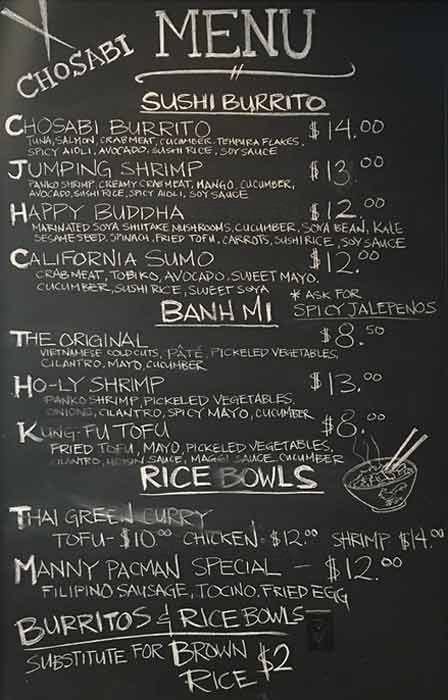 CHOSABI
MENU
SUSHI BURRITO
CHOSABI BURRITO $14.00
TUNA, SALMON, CRABMEAT, CUCUMBER, TEMPURA FLAKES,
SPICY AIOLI, AVOCADO, SUSHI RICE, SOY SAUCE
JUMPING SHRIMP $13.00
PANKO SHRIMP, CREAMY CRABMEAT, MANGO, CUCUMBER,
AVOCADO, SUSHI RICE, SPICY AIOLI, SOY SAUCE
HAPPY BUDDHA $12.00
MARINATED SOYA SHIITAKE MUSHROOMS, CUCUMBER, SOYA BEAN, KALE
SESAME SEED, SPINACH, FRIED TOFU, CARROTS, SUSHI RICE, SOY SAUCE
CALIFORNIA SUMO $12.00
CRABMEAT, TOBIKO, AVOCADO, SWEET MAYO,
CUCUMBER, SUSHI RICE, SWEET SOYA
* ASK FOR
SPICY JALEPENOS
BANH MI
THE ORIGINAL $8.50
VIETNAMESE COLD CUTS, PÂTÉ, PICKELED VEGETABLES,
CILANTRO, MAYO, CUCUMBER
HO-LY SHRIMP $13.00
PANKO SHRIMP, PICKELED VEGETABLES,
ONIONS, CILANTRO, SPICY MAYO, CUCUMBER
KUNG-FU TOFU $8.00
FRIED TOFU, MAYO, PICKELED VEGETABLES,
CILANTRO, HOISIN SAUCE, MAGGI SAUCE, CUCUMBER
RICE BOWLS
THAI GREEN CURRY
TOFU-$10.00 CHICKEN-$12.00 SHRIMP $14.00
MANNY PACMAN SPECIAL - $12.00
FILIPINO SAUSAGE, TOCINO, FRIED EGG
BURRITOS & RICE BOWLS-
SUBSTITUTE FOR BROWN
RICE $2